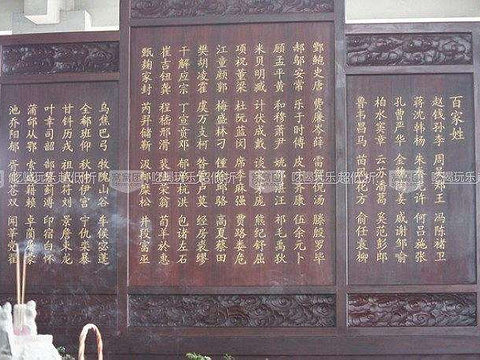 百家姓
赵钱孙李 周吴郑王 冯陈褚卫
蒋沈韩杨 朱秦尤许 何吕施张
孔曹严华 金魏陶姜 戚谢邹喻
柏水窦章 云苏潘葛 奚范彭郎
鲁韦昌马 苗凤花方 俞任袁柳
酆鲍史唐 费廉岑薛 雷贺倪汤 滕殷罗毕
郝邬安常 乐于时傅 皮卞齐康 伍余元卜
顾孟平黄 和穆萧尹 姚邵湛汪 祁毛禹狄
米贝明臧 计伏成戴 谈宋茅庞 熊纪舒屈
项祝董梁 杜阮蓝闵 席季麻强 贾路娄危
江童颜郭 梅盛林刁 钟徐邱骆 高夏蔡田
樊胡凌霍 虞万支柯 昝管卢莫 经房裘缪
干解应宗 丁宣贲邓 郁单杭洪 包诸左石
崔吉钮龚 程嵇邢滑 裴陆荣翁 荀羊於惠
甄麹家封 芮羿储靳 汲邴糜松 井段富巫
乌焦巴弓 牧隗山谷 车侯宓蓬
全郗班仰 秋仲伊宫 宁仇栾暴
甘钭历戎 祖武符刘 景詹束龙
叶幸司韶 郜黎蓟溥 印宿白怀
蒲邰从鄂 索咸籍赖 卓蔺屠蒙
池乔阳郁 胥能苍双 闻莘党翟
吃喝玩乐超低折